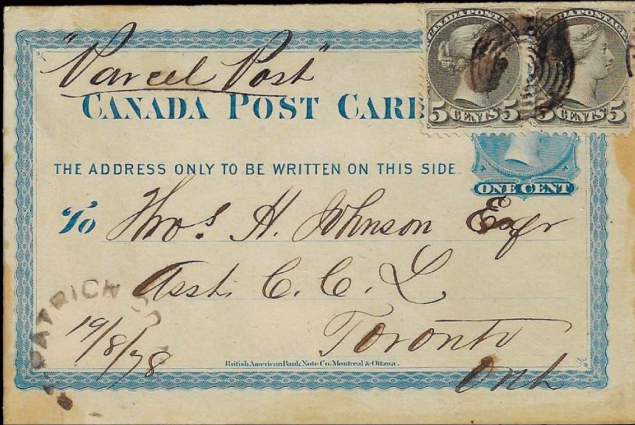 "Parcel Post"
CANADA POSTAGE CANADA POSTAGE
5 CENTS 5 5 CENTS 5
CANADA POST CARD
THE ADDRESS ONLY TO BE WRITTEN ON THIS SIDE.
ONE CENT
To Thos H. Johnson Esqr
Asst. C. C. L.
Toronto
Ont
PATRICK
19/8/78
British American Bank Note Co. Montreal & Ottawa.